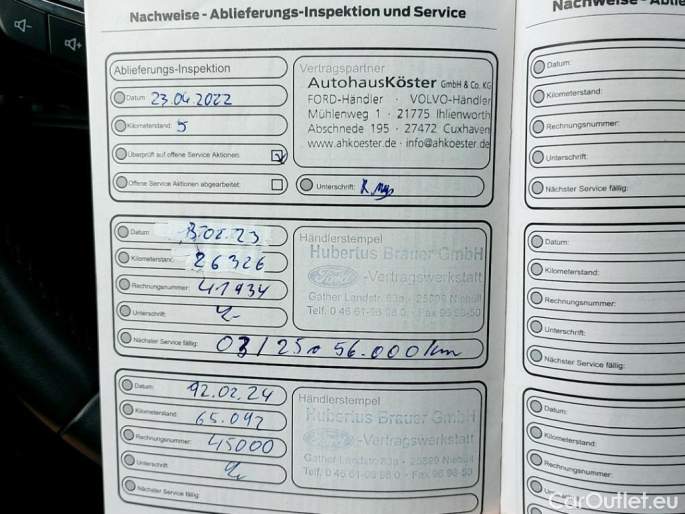 Nachweise - Ablieferungs-Inspektion und Service
Ablieferungs-Inspektion
Datum: 23.04.2022
Kilometerstand: 5
Überprüft auf offene Service Aktionen:
Offene Service Aktionen abgearbeitet:
Vertragspartner
AutohausKöster GmbH & Co. KG
FORD-Händler · VOLVO-Händler
Mühlenweg 1 · 21775 Ihlienworth
Abschnede 195 · 27472 Cuxhaven
www.ahkoester.de · info@ahkoester.de
Unterschrift:
Datum: 02.23
Kilometerstand: 26326
Rechnungsnummer: 41934
Unterschrift:
Nächster Service fällig: 03/25 56.000 km
Händlerstempel
Hubertus Brauer GmbH
Ford -Vertragswerkstatt
Gather Landstr. 63a · 25899 Niebüll
Datum:
02.24
Kilometerstand: 65.092
Rechnungsnummer: 45000
Unterschrift:
Nächster Service fällig:
Händlerstempel
Hubertus Brauer GmbH
Ford -Vertragswerkstatt
Gather Landstr. 63a · 25899 Niebüll
Datum:
Kilometerstand:
Rechnungsnummer:
Unterschrift:
Nächster Service fällig:
Datum:
Kilometerstand:
Rechnungsnummer:
Unterschrift:
Nächster Service fällig:
Datum:
Kilometerstand:
Rechnungsnummer:
Unterschrift:
CarOutlet.eu